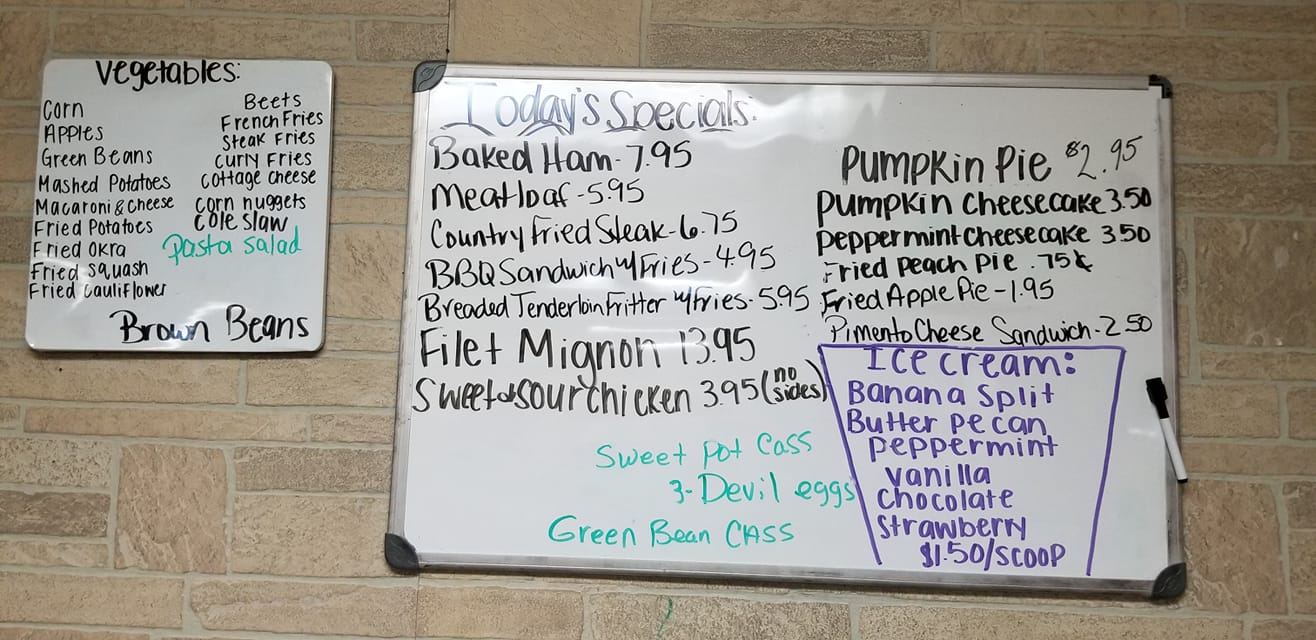 Vegetables:
Corn
APPles
Green Beans
Mashed Potatoes
Macaroni & cheese
Fried Potatoes
Fried Okra
Fried squash
Fried cauliflower
Beets
French Fries
Steak Fries
curly Fries
cottage cheese
corn nuggets
cole slaw
Pasta salad
Brown Beans
Today's Specials:
Baked Ham - 7.95
Meatloaf - 5.95
Country Fried Steak - 6.75
BBQ Sandwich w/ Fries - 4.95
Breaded Tenderloin Fritter w/ fries - 5.95
Filet Mignon 13.95
Sweet & Sour chicken 3.95 (no sides)
Sweet Pot Cass
3 - Devil eggs
Green Bean CASS
Pumpkin Pie $2.95
Pumpkin Cheesecake 3.50
Peppermint Cheesecake 3.50
Fried Peach Pie .75¢
Fried Apple Pie - 1.95
Pimento Cheese Sandwich - 2.50
Ice cream:
Banana Split
Butter Pecan
Peppermint
Vanilla
Chocolate
Strawberry
$1.50/scoop